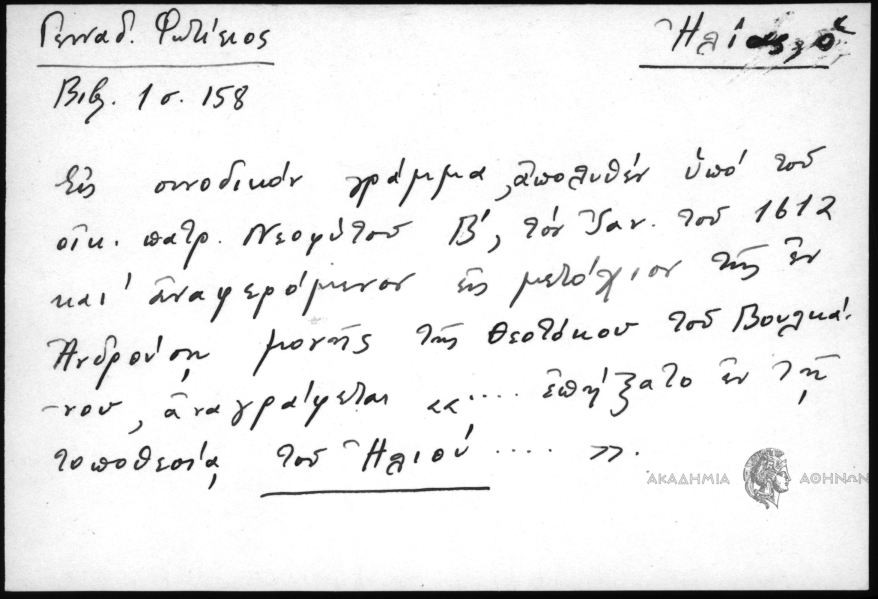 Γενναδ. Φωτίειος
Ἠλίας, ὁ
Βιβ. 1 σ. 158
Εἰς συνοδικόν γράμμα, ἀπολυθέν ὑπό τοῦ
οἰκ. πατρ. Νεοφύτου Β', τόν Ἰαν. τοῦ 1612
και' ἀναφερόμενον εἰς μετόχιον τῆς ἐν
Ἀνδρούσῃ μονῆς τῆς Θεοτόκου τοῦ Βουλκά-
-νου, ἀναγράφεται «.... ἐπήξατο ἐν τῇ
τοποθεσίᾳ τοῦ Ἠλιού .... ».
ΑΚΑΔΗΜΙΑ ΑΘΗΝΩΝ